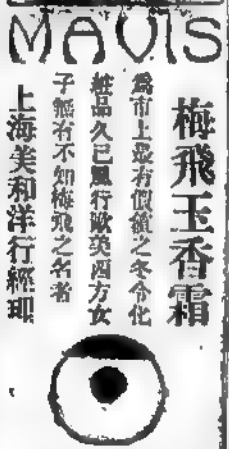 MAVIS
梅飛玉香霜
爲市上最有價值之冬令化
粧品久已風行歐美西方女
子無有不知梅飛之名者
上海美和洋行經理